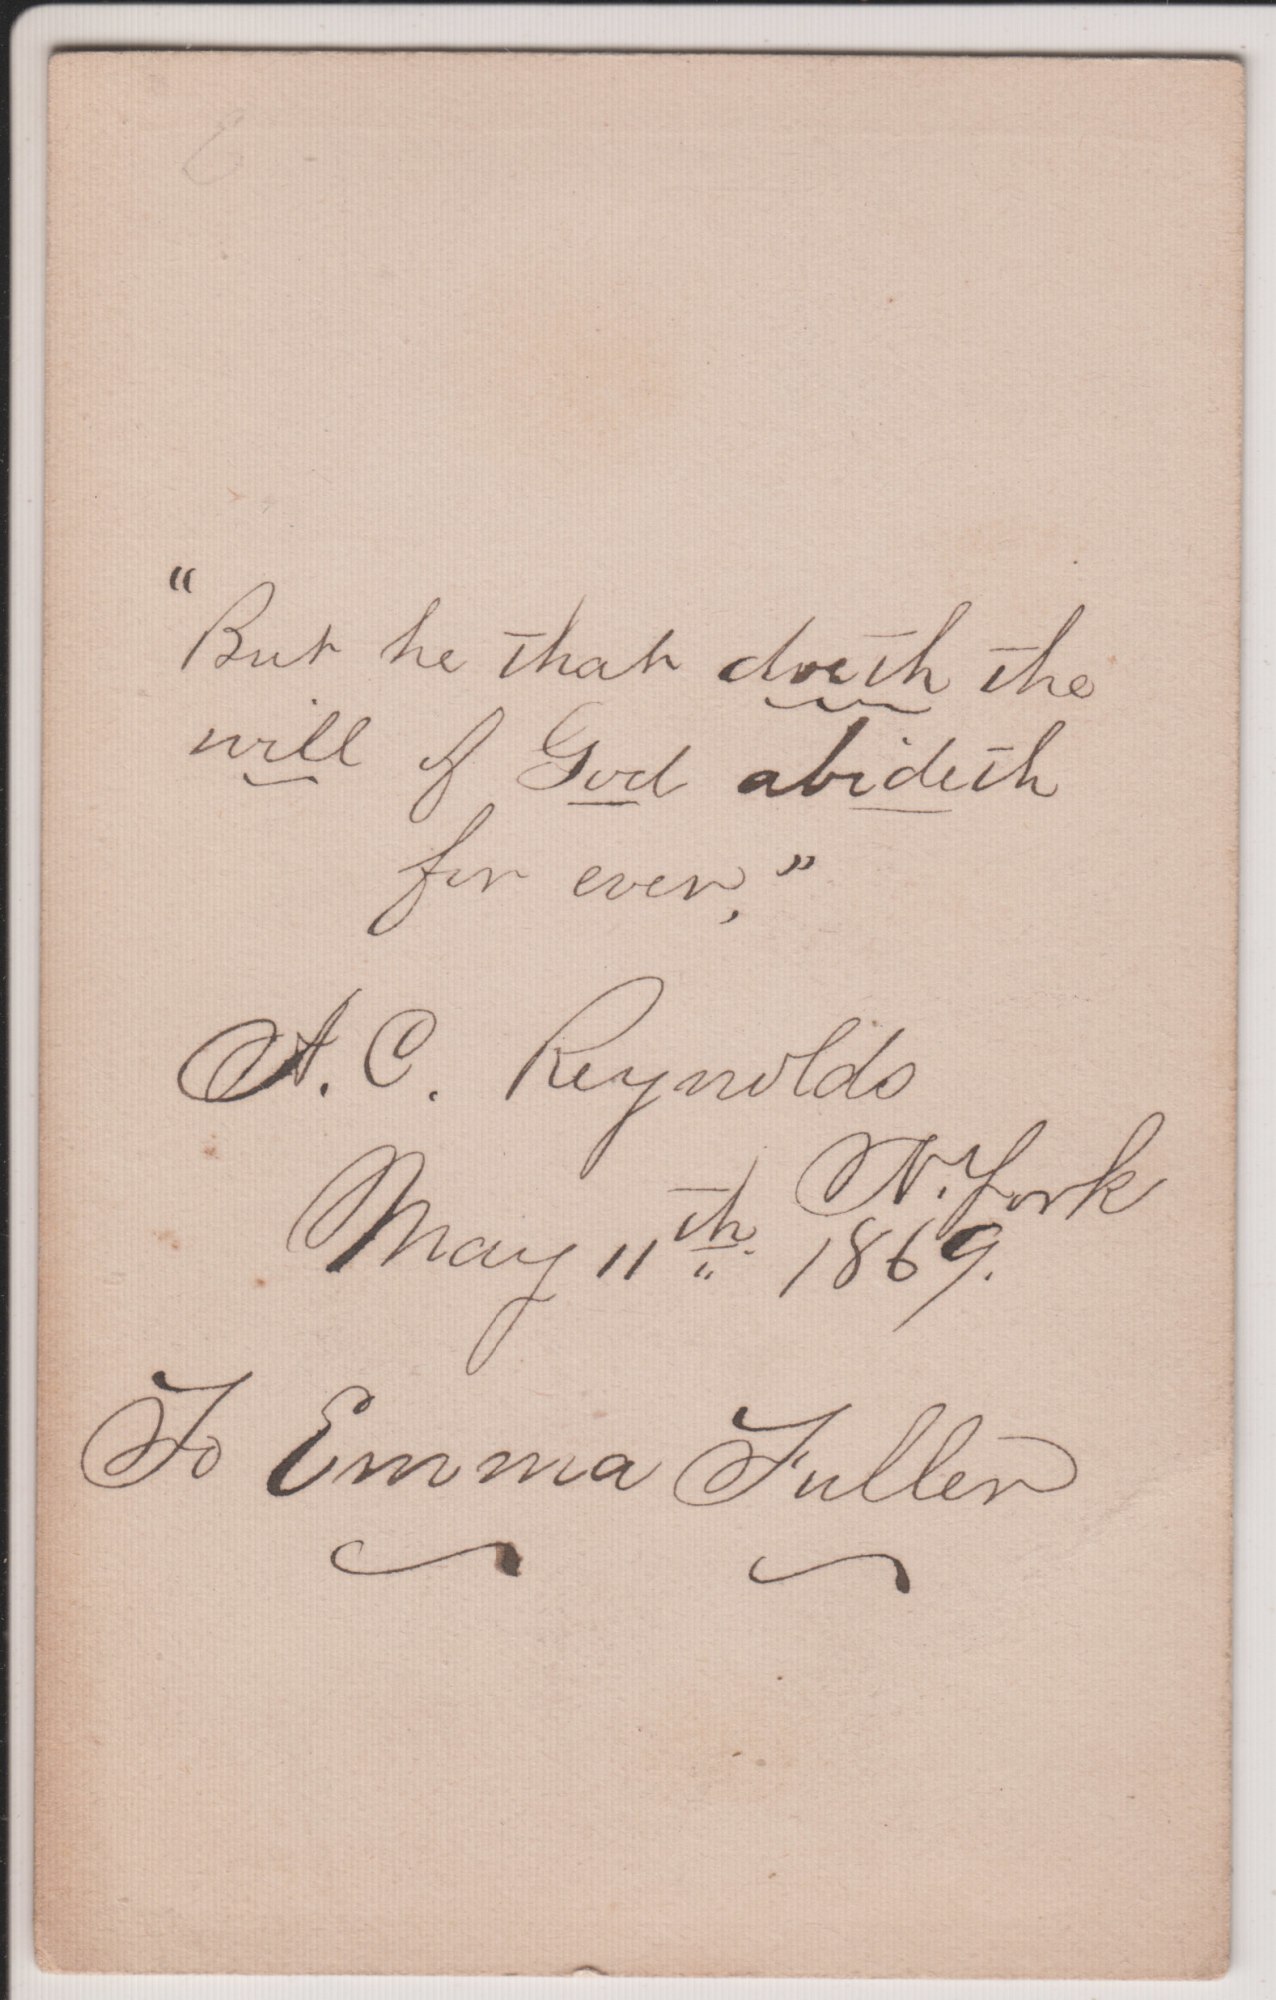 “But he that doeth the
will of God abideth
for ever,”
A. C. Reynolds
N. York
May 11th 1869.
To Emma Fuller